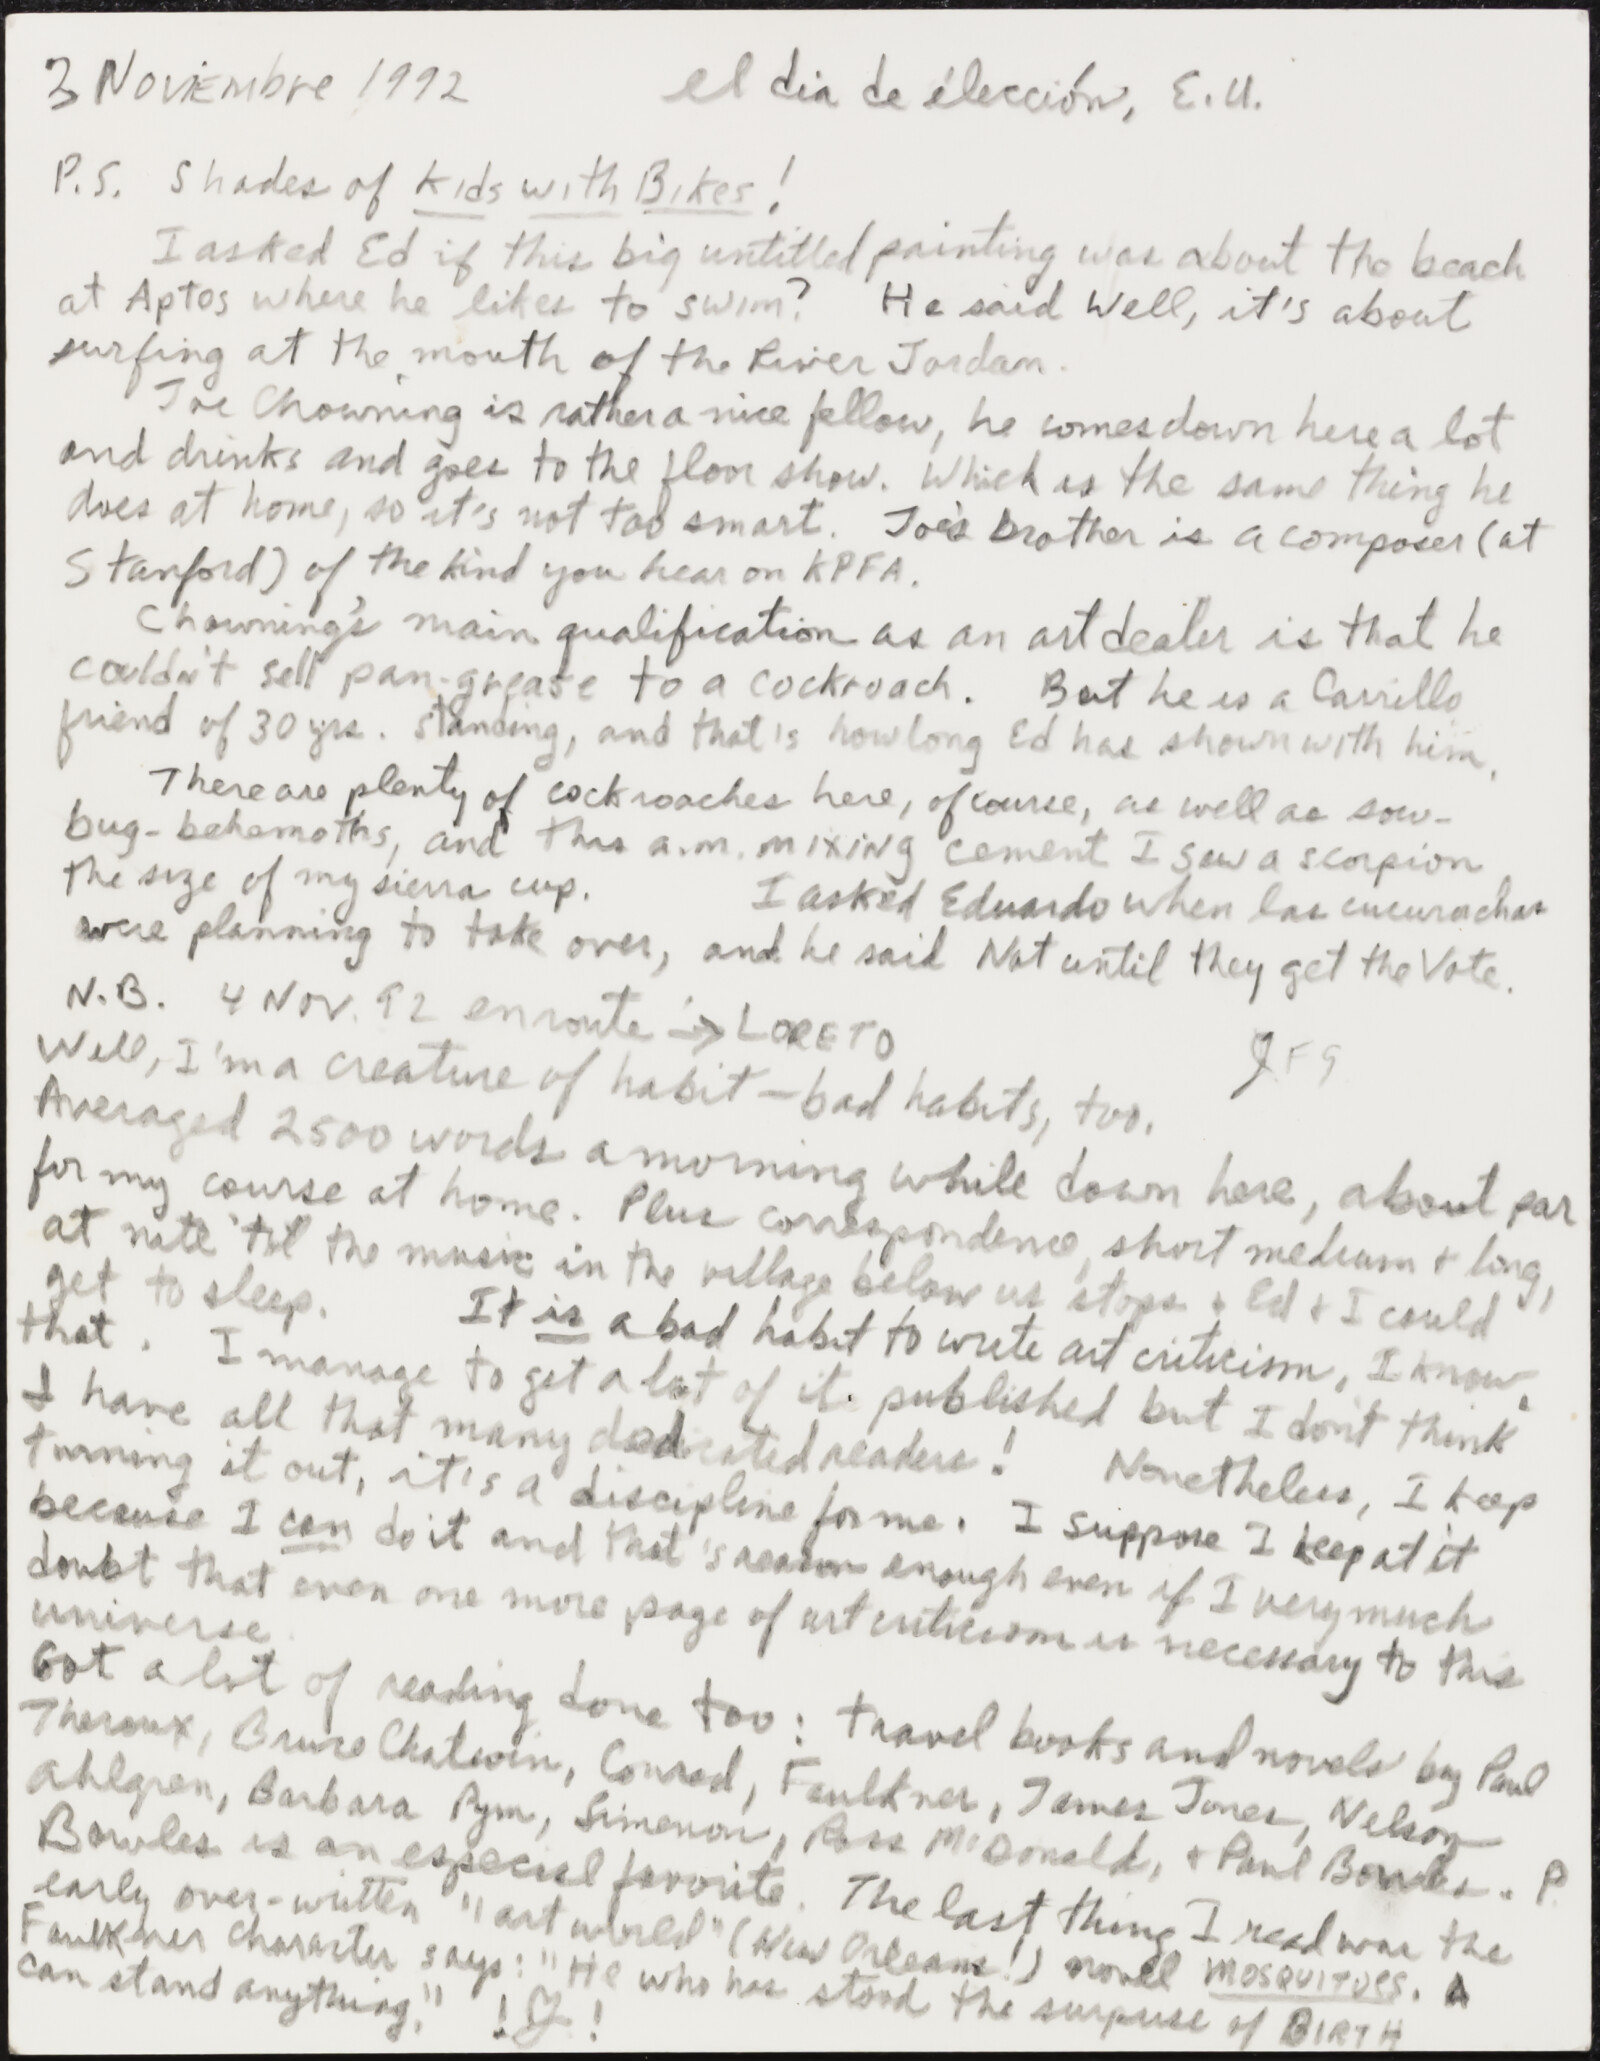 3 Noviembre 1992 el dia de élección, E.U.
P.S. Shades of Kids with Bikes!
I asked Ed if this big untitled painting was about the beach
at Aptos where he likes to swim? He said Well, it's about
surfing at the mouth of the River Jordan.
Joe Chowning is rather a nice fellow, he comes down here a lot
and drinks and goes to the floor show. Which is the same thing he
does at home, so it's not too smart. Joe's brother is a composer (at
Stanford) of the kind you hear on KPFA.
Chowning's main qualification as an art dealer is that he
couldn't sell pan-grease to a cockroach. But he is a Carrillo
friend of 30 yrs. standing, and that's how long Ed has shown with him.
There are plenty of cockroaches here, of course, as well as sow-
bug-behemoths, and this a.m. mixing cement I saw a scorpion
the size of my sierra cup. I asked Eduardo when las cucurachas
were planning to take over, and he said Not until they get the Vote.
N.B. 4 Nov. 92 enroute → LORETO JFG
Well, I'm a creature of habit - bad habits, too.
Averaged 2500 words a morning while down here, about par
for my course at home. Plus correspondence, short medium & long,
at nite 'til the music in the village below us stops & Ed & I could
get to sleep. It is a bad habit to write art criticism, I know
that. I manage to get a lot of it published but I don't think
I have all that many dedicated readers! Nonetheless, I keep
turning it out, it's a discipline for me. I suppose I keep at it
because I can do it and that's reason enough even if I very much
doubt that even one more page of art criticism is necessary to this
universe.
Got a lot of reading done too: travel books and novels by Paul
Theroux, Bruce Chatwin, Conrad, Faulkner, James Jones, Nelson
Ahlgren, Barbara Pym, Simenon, Ross McDonald, & Paul Bowles. P.
Bowles is an especial favorite. The last thing I read was the
early over-written "art world" (New Orleans!) novel MOSQUITOES. A
Faulkner character says: "He who has stood the surprise of BIRTH
can stand anything." ! !